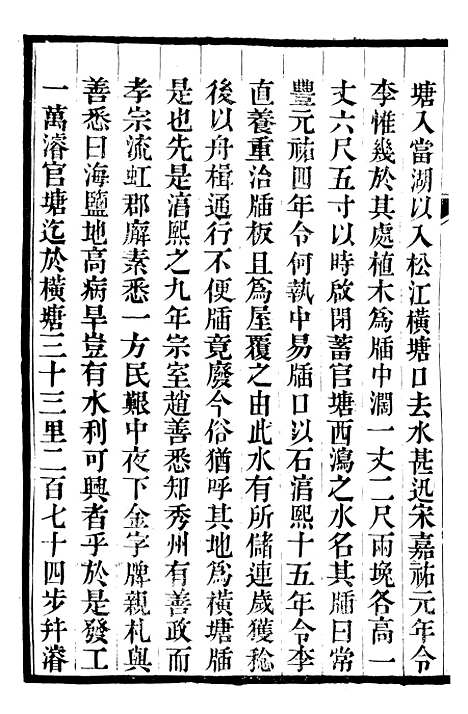 塘入當湖以入松江橫塘口去水甚迅宋嘉祐元年令
李惟幾於其處植木爲牐中濶一丈二尺兩堍各高一
丈六尺五寸以時啟閉蓄官塘西瀉之水名其牐曰常
豐元祐四年令何執中易牐口以石淯熙十五年令李
直養重治牐板且爲屋覆之由此水有所儲連歲獲稔
後以舟楫通行不便牐竟廢今俗猶呼其地爲橫塘牐
是也先是淯熙之九年宗室趙善悉知秀州有善政而
孝宗流虹郡廨素悉一方民艱中夜下金字牌親札與
善悉曰海鹽地高病旱豈有水利可興者乎於是發工
一萬濬官塘迄於橫塘三十三里二百七十四步幷濬